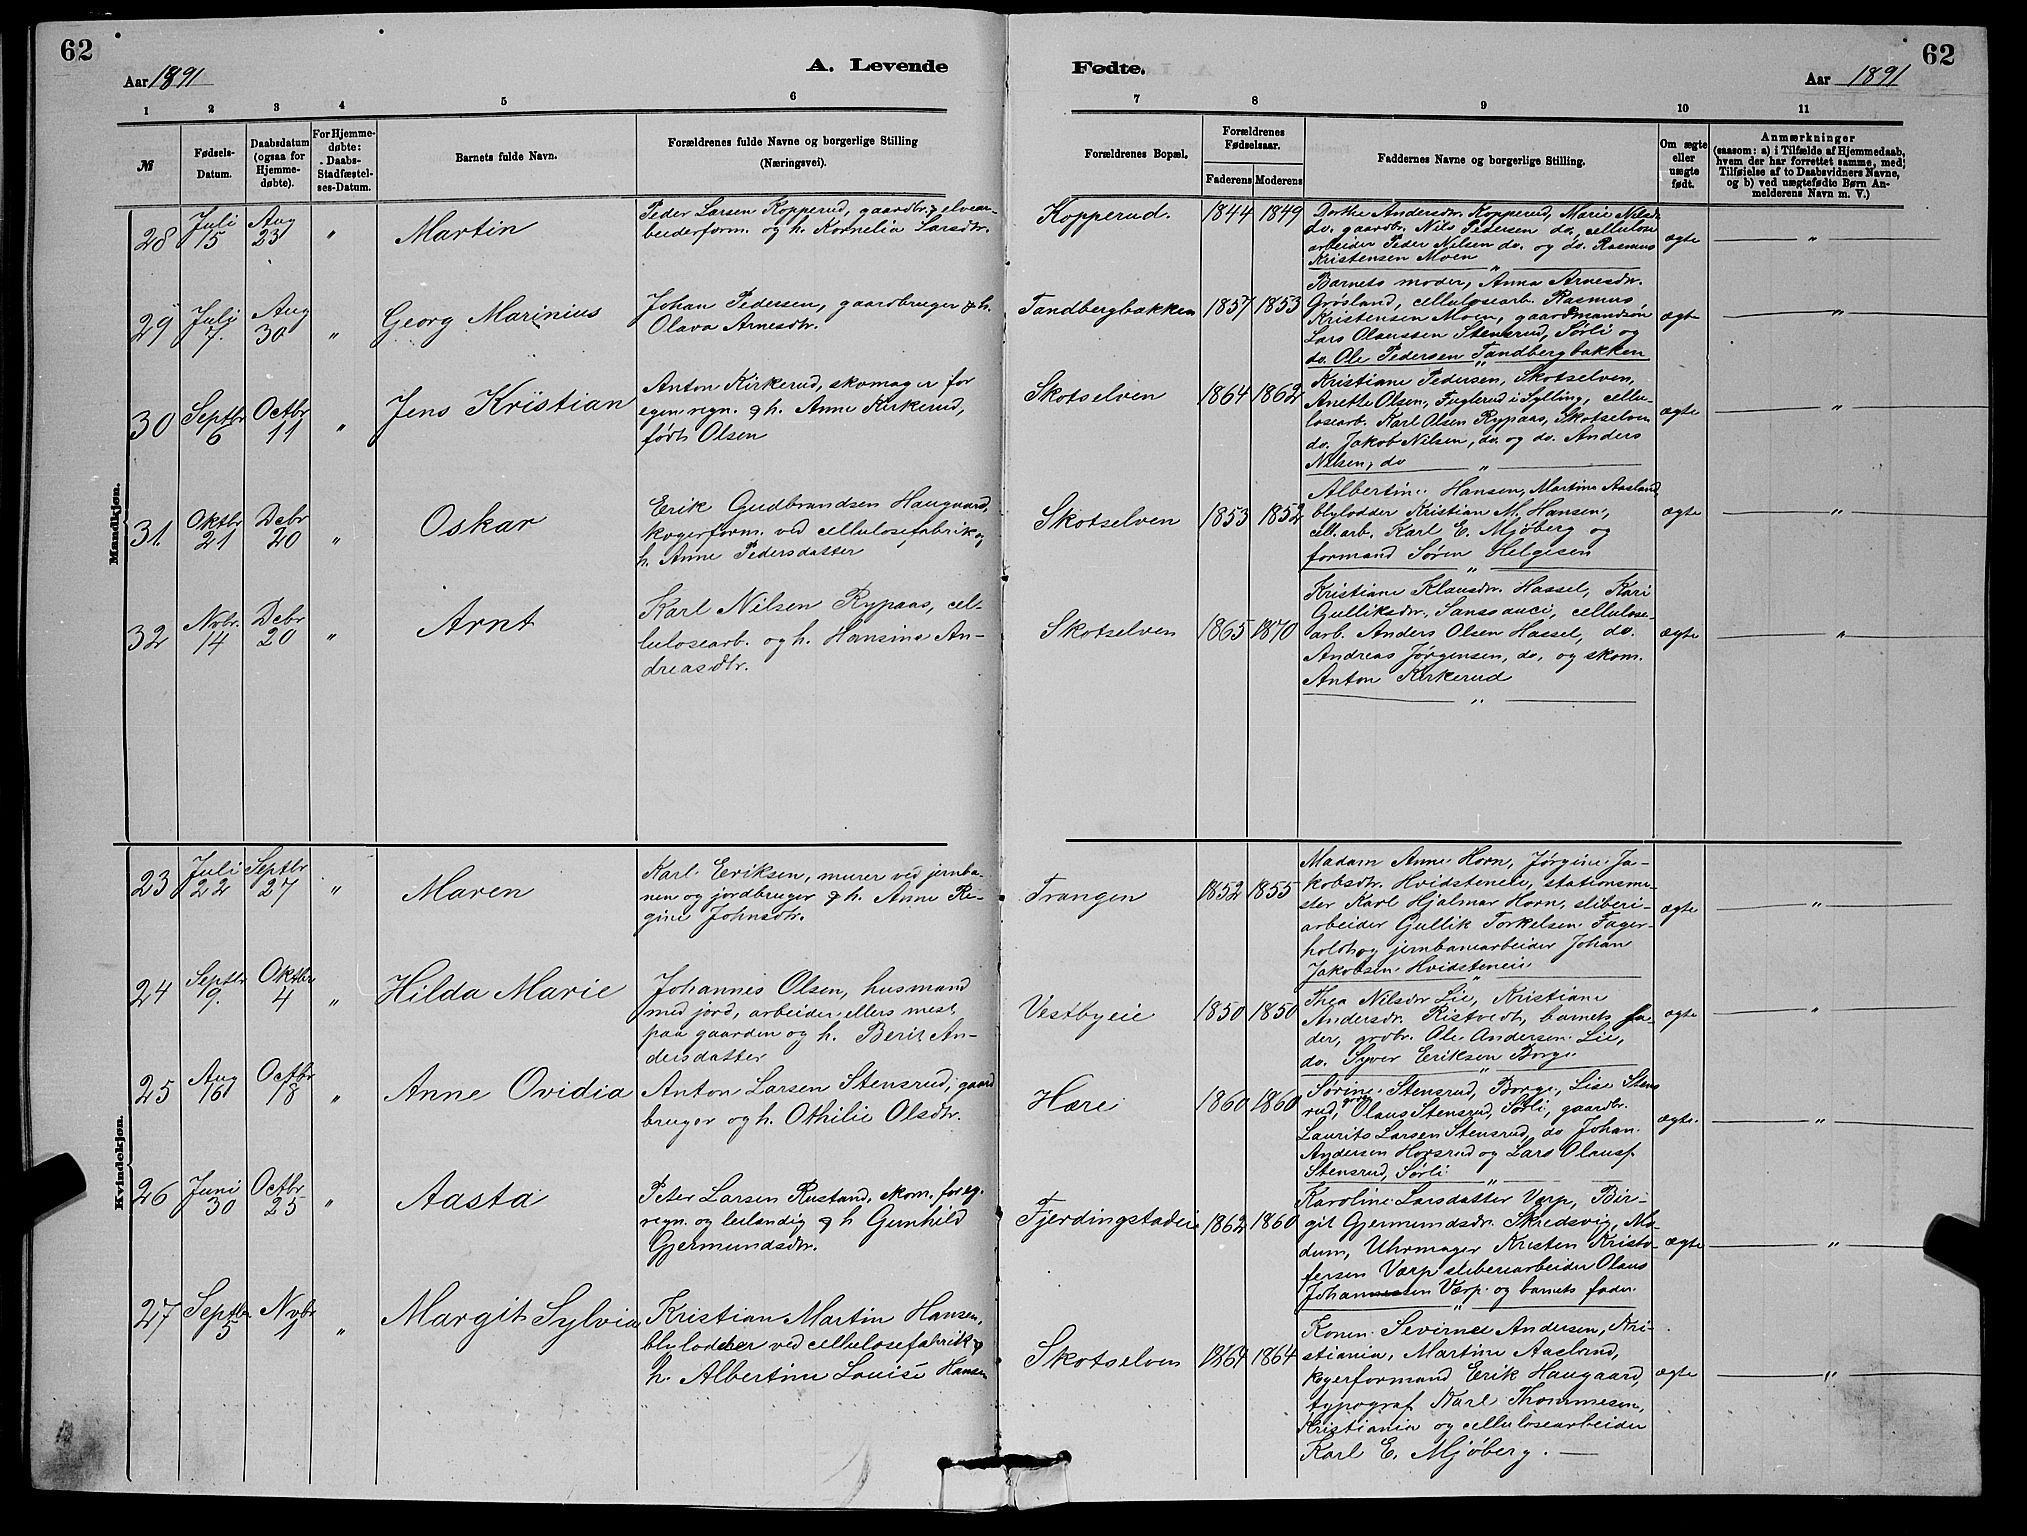 62
Aar 1891
A. Levende
1 2 3 4 5 6
№
Fødsels-
Datum.
Daabsdatum
(ogsaa for
Hjemme-
døbte).
For Hjemme-
døbte:
Daabs-
Stadfæstel-
ses-Datum.
Barnets fulde Navn.
Forældrenes fulde Navne og borgerlige Stilling
(Næringsvei).
Mandkjøn.
28 Juli 15 Aug 23 " Martin
Peder Larsen Kopperud, gaardbr. & elvear-
beiderform. og h. Kornelia Larsdtr.
29 Juli 7. Aug 30 " Georg Marinius
Johan Pedersen, gaardbruger & h.
Olava Arnesdtr.
30 Septbr 6 Octbr 11 " Jens Kristian
Anton Kirkerud, skomager for
egen regn. & h. Anne Kirkerud,
født Olsen
31. Oktbr 21 Debr 20 " Oskar
Erik Gudbrandsen Haugaard,
kogerform. ved cellulosefabrik og
h. Anne Pedersdatter
32 Nvbr. 14 Debr 20 " Arnt
Karl Nilsen Rypaas, cel-
lulosearb. og h. Hansine An-
dreasdtr.
Kvindekjøn.
23 Juli 22 Septbr 27 " Maren
Karl Eriksen, murer ved jernba-
nen og jordbruger & h. Anne Re-
gine Johnsdtr.
24 Septbr 9. Oktbr 4 " Hilda Marie
Johannes Olsen, husmand
med jord, arbeider ellers mest
paa gaarden og h. Berit An-
dersdatter
25 Aug 16 Octbr 18 " Anne Ovidia
Anton Larsen Stensrud, gaard
bruger og h. Othilie Olsdtr.
26 Juni 30 Octbr 25 " Aasta
Peter Larsen Rustand, skom. for eg.
regn. og leilændig & h Gunhild
Gjermundsdtr.
27 Septbr. 5 Nvbr 1 " Margit Sylvia
Kristian Martin Hansen,
blylodder ved cellulosefabrik &
h. Albertine Louise Hansen
62
Fødte.
Aar 1891
7 8 9 10 11
Forældrenes Bopæl.
Forældrenes
Fødselsaar.
Faderens Moderens
Faddernes Navne og borgerlige Stilling.
Om ægte
eller
uægte
født.
Anmærkninger
(saasom: a) i Tilfælde af Hjemmedaab,
hvem der har forrettet samme, med
Tilføielse af to Daabsvidners Navne,
og b) ved uægtefødte Børn An-
melderens Navn m. V.)
Kopperud. 1844 1849
Dorthe Andersdr. Kopperud, Marie Nilsdr.
do. gaardbr. Nils Pedersen do, cellulose
arbeider Peder Nilsen do. og do. Rasmus
Kristensen Moen
ægte "
Tandbergbakken 1857 1853
Barnets moder, Anna Arnesdr.
Grøsland, cellulosearb. Rasmus
Kristensen Moen, gaardmandsøn
Lars Olaussen Stensrud, Sørli og
do. Ole Pedersen Tandbergbakken
ægt "
Skotselven 1864 1862
Kristiane Pedersen, Skotselven,
Anette Olsen, Fuglerud i Sylling, cellu-
losearb. Karl Olsen Rypaas, Skotselven
do. Jakob Nilsen, do. og do. Anders
Nilsen, do
ægte "
Skotselven 1853 1852
Albertine Hansen, Martine Aasland
blylodder Kristian M. Hansen,
cell. arb. Karl E. Mjøberg og
formand Søren Helgesen
ægte "
Skotselven 1865 1870
Kristiane Klausdr. Hassel, Kari
Gulliksdr. Sanssouci, cellulose-
arb. Anders Olsen Hassel, do.
Andreas Jørgensen, do, og skom.
Anton Kirkerud
ægte "
Trangen 1852 1855
Madam Anne Horn, Jørgine Ja-
kobsdtr. Hvidsteneie, stationsme-
ster Karl Hjalmar Horn, sliberi-
arbeider Gullik Torkelsen Fager-
holdt og jernbanearbeider Johan
Jakobsen Hvidsteneie
ægte "
Vestbyeie 1850 1850
Thea Nilsdr Lie, Kristiane
Andersdr. Ristvedt, barnets fa-
der, grdbr. Ole Andersen Lie,
do. Syver Eriksen Borge
ægte "
Hære 1860 1860
Sørine Stensrud, Borge, Lise Stens
rud, Olaus Stensrud, Sørli, gaardbr.
Laurits Larsen Stensrud, do Johan
Andersen Horsrud og Lars Olauss.
Stensrud, Sørli
ægte. "
Fjerdingstadeie 1862 1860
Karoline Larsdatter Værp, Bir-
git Gjermundsdr. Skredsvig, Mo-
dum, Uhrmager Kristen Kristo-
fersen Værp sliberiarbeider Olaus
Johannessen Værp og barnets fader.
ægte "
Skotselven 1864 1864
Konen Sevirine Andersen, Kri-
stiania, Martine Aasland,
kogerformand Erik Haugaard,
typograf Karl Thommesen,
Kristiania og cellulosearbeider
Karl E. Mjøberg.
ægte "